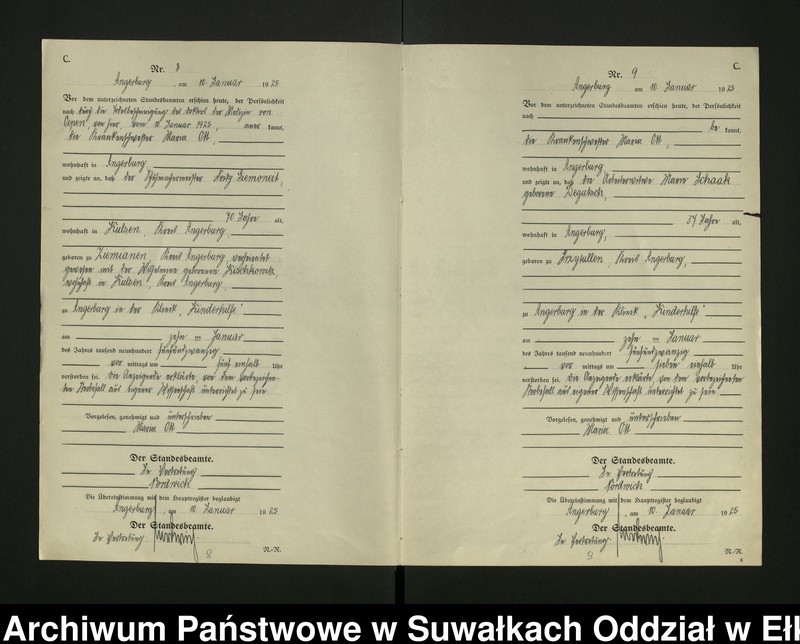 C.
Nr. 8
Angerburg, am 10. Januar 1925
Vor dem unterzeichneten Standesbeamten erschien heute, der Persönlichkeit
nach durch die Todesbescheinigung des Doktors der Medizin von
vom 10 Januar 1925, kannt,
die Krankenschwester Maria Ott,
wohnhaft in Angerburg
und zeigte an, daß der Fritz
70 Jahre alt,
wohnhaft in Kulsen, Kreis Angerburg,
geboren zu Ziemianen, Kreis Angerburg, verheiratet
gewesen mit der geborenen
wohnhaft in Kulsen, Kreis Angerburg,
zu Angerburg in der Klinik „Hinderhilfe"
am zehn ten Januar
des Jahres tausend neunhundert fünfundzwanzig
vor mittags um fünf einhalb Uhr
verstorben sei. Die Anzeigende erklärte, von dem vorbezeichne-
ten Sterbefall aus eigener Wissenschaft unterrichtet zu sein.
Vorgelesen, genehmigt und unterschrieben
Maria Ott
Der Standesbeamte.
In Vertretung
Nordwich
Die Übereinstimmung mit dem Hauptregister beglaubigt
Angerburg, am 10. Januar 1925
Der Standesbeamte.
In Vertretung.
8
N.-R.
C.
Nr. 9
Angerburg am 10. Januar 1925
Vor dem unterzeichneten Standesbeamten erschien heute, der Persönlichkeit
nach be kannt,
die Krankenschwester Maria Ott,
wohnhaft in Angerburg
und zeigte an, daß die Marie Schaak
geborene Degutsch,
57 Jahre alt,
wohnhaft in Angerburg,
geboren zu Przytullen, Kreis Angerburg,
zu Angerburg in der Klinik „Hinderhilfe"
am zehn ten Januar
des Jahres tausend neunhundert fünfundzwanzig
vor mittags um sieben einhalb Uhr
verstorben sei. Die Anzeigende erklärte, von dem vorbezeichneten
Sterbefall aus eigener Wissenschaft unterrichtet zu sein.
Vorgelesen, genehmigt und unterschrieben
Maria Ott
Der Standesbeamte.
In Vertretung
Nordwich
Die Übereinstimmung mit dem Hauptregister beglaubigt
Angerburg, am 10. Januar 1925
Der Standesbeamte.
In Vertretung.
9
N.-R.
6
Archiwum Państwowe w Suwałkach Oddział w Eł